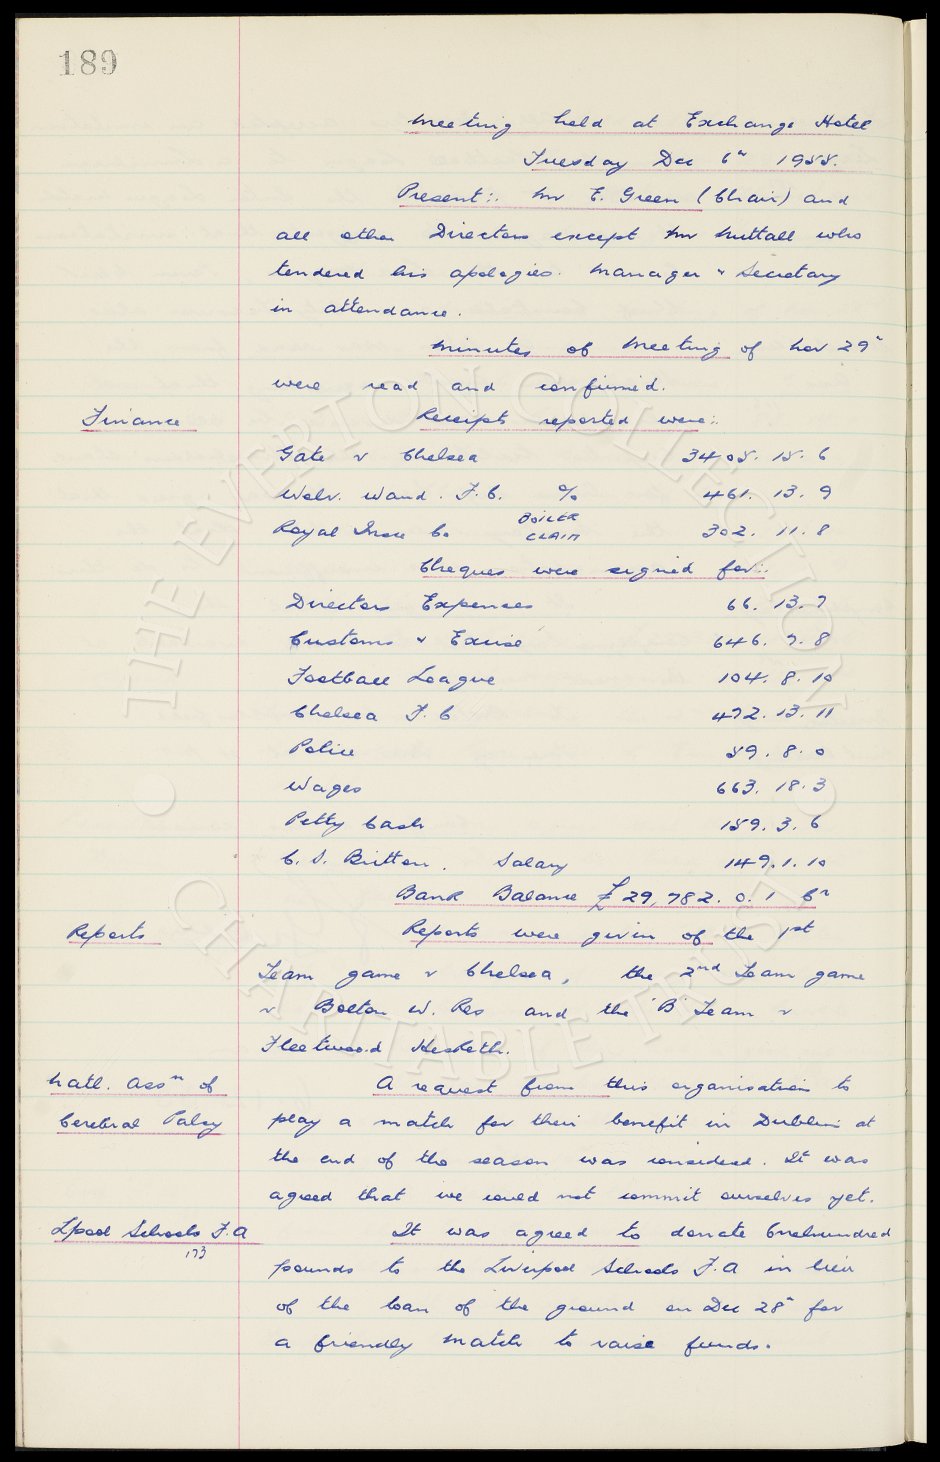 189
Meeting held at Exchange Hotel
Tuesday Dec 6th 1955.
Present:. Mr E. Green (Chair) and
all other Directors except Mr Nuttall who
tendered his apologies. Manager & Secretary
in attendance.
Minutes of Meeting of Nov 29"
were read and confirmed.
Finance Receipts reported were:.
Gate v Chelsea 3405. 15. 6
Wolv. Wand. F.C. % 461. 13. 9
Royal Insce Co BOILER CLAIM 302. 11. 8
Cheques were signed for:.
Directors Expenses 66. 13. 7
Customs & Excise 646. 7. 8
Football League 104. 8. 10
Chelsea F. C 472. 13. 11
Police 59. 8. 0
Wages 663. 18. 3
Petty Cash 159. 3. 6
C. S. Britton. Salary 149. 1. 10
Bank Balance £29,782. 0. 1 Cr
Reports Reports were given of the 1st
Team game v Chelsea, the 2nd Team game
v Bolton W. Res and the 'B' Team v
Fleetwood Hesketh.
Natl. Assn of A request from this organisation to
Cerebral Palsy play a match for their benefit in Dublin at
the end of the season was considered. It was
agreed that we could not commit ourselves yet.
Lpool Schools F.A It was agreed to donate Onehundred
173 pounds to the Liverpool Schools F.A in lieu
of the loan of the ground on Dec 28" for
a friendly match to raise funds.
THE EVERTON COLLECTION
CHARITABLE TRUST